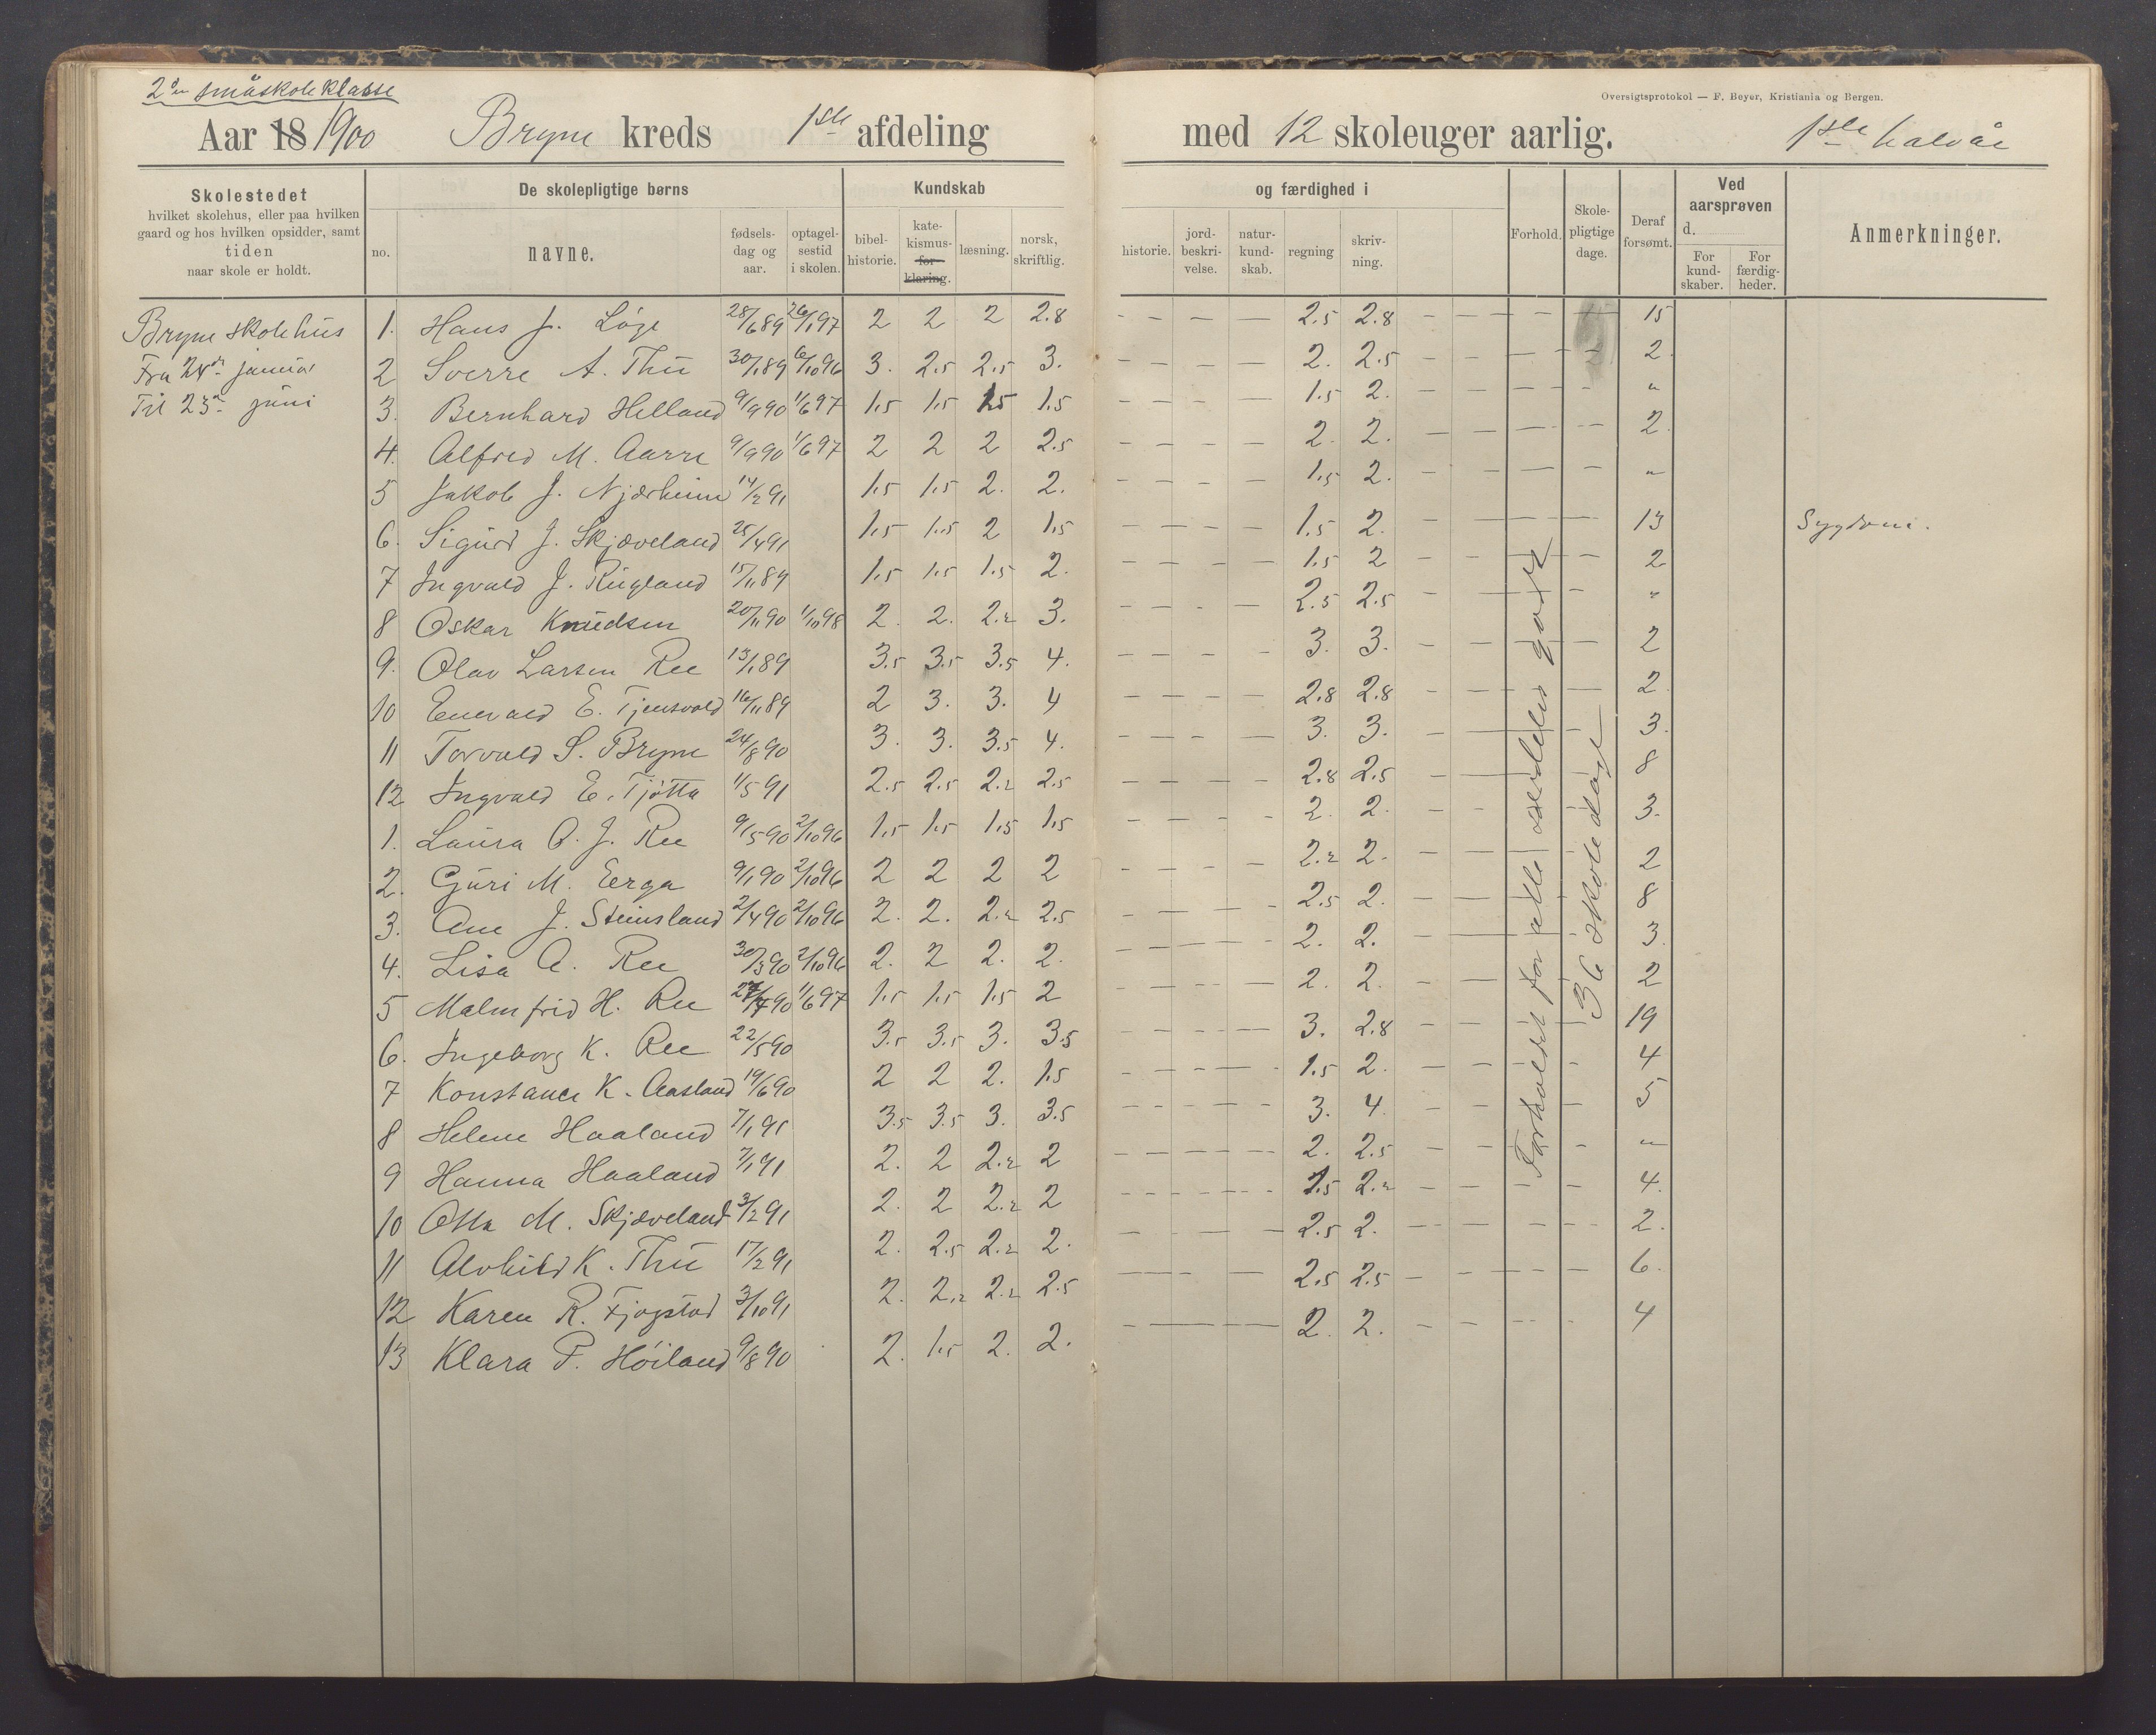 2den småskoleklasse
Oversigtsprotokol — F. Beyer, Kristiania og Bergen.
Aar 18 1900 Bryne kreds 1ste afdeling med 12 skoleuger aarlig. 1ste halvår
Skolestedet hvilket skolehus, eller paa hvilken gaard og hos hvilken opsidder, samt tiden naar skole er holdt.
De skolepligtige børns
no. navne. fødsels-dag og aar. optagel-sestid i skolen.
Kundskab og færdighed i
bibel-historie. kate-kismus-for-klaring. læsning. norsk, skriftlig. historie. jord-beskri-velse. natur-kund-skab. regning skriv-ning.
Forhold. Skole-pligtige dage. Deraf forsømt.
Ved aarsprøven d. For kund-skaber. For færdig-heder.
Anmerkninger.
Bryne skolehus
Fra 24de januar
Til 23de juni
1. Hans J. Löge 28/6 89 26/1 97 2 2 2 2.8 - - - - 2.5 2.8 - - - 15
2 Sverre A. Thu 30/1 89 6/10 96 3. 2.5 2.5 3. - - - - 2. 2.5 - - - 2
3. Bernhard Helland 9/9 90 1/6 97 1.5 1.5 1.5 1.5 - - - - 1.5 2. - - - "
4. Alfred M. Aarre 9/9 90 1/6 97 2 2 2 2.5 - - - - 2. 2. - - - 2.
5 Jakob J. Njærheim 14/2 91 1.5 1.5 2. 2. - - - - 1.5 2. - - - "
6. Sigurd J. Skjæveland 25/4 91 1.5 1.5 2 1.5 - - - - 1.5 2. - - - 13 Sygdom.
7 Ingvald J. Rugland 15/11 89 1.5 1.5 1.5 2. - - - - 1.5 2 - - - 2
8 Oskar Knudsen 20/11 90 1/10 98 2. 2. 2.2 3. - - - - 2.5 2.5 - - - "
9. Olav Larsen Ree 13/1 89 3.5 3.5 3.5 4. - - - - 3. 3. - - - 2
10 Enevald E. Tjensvold 16/11 89 2 3. 3. 4 - - - - 2.8 2.8 - - - 2.
11 Torvald S. Bryne 24/8 90 3. 3. 3.5 4. - - - - 3. 3. - - - 3.
12 Ingvald E. Tjötta 1/5 91 2.5 2.5 2.2 2.5 - - - - 2.8 2.5 - - - 8
1. Laura O. J. Ree 9/5 90 2/10 96 1.5 1.5 1.5 1.5 - - - - 2. 2. - - - 3.
2. Guri M. Eerga 9/1 90 2/10 96 2 2 2 2 - - - - 2.2 2. - - - 2
3. Ane J. Steinsland 2/4 90 2/10 96 2. 2. 2.2 2.5 - - - - 2.5 2. - - - 8
4. Lisa A. Ree 30/3 90 2/10 96 2. 2 2. 2. - - - - 2. 2. - - - 3.
5 Malmfrid H. Ree 27/4 90 1/6 97 1.5 1.5 1.5 2 - - - - 2. 2. - - - 2
6. Ingeborg K. Ree 22/5 90 3.5 3.5 3. 3.5 - - - - 3. 2.8 - - - 19
7 Konstance K. Aasland 19/6 90 2 2 2. 1.5 - - - - 1.5 2. - - - 4
8 Helene Haaland 7/1 91 3.5 3.5 3. 3.5 - - - - 3. 4. - - - 5
9 Hanna Haaland 7/1 91 2. 2 2.2 2 - - - - 2. 2.5 - - - "
10 Otta M. Skjæveland 3/2 91 2. 2 2.2 2 - - - - 1.5 2.2 - - - 4.
11 Alvhild K. Thu 17/2 91 2. 2.5 2.2 2. - - - - 2.5 2. - - - 2.
12 Karen R. Fjogstad 3/10 91 2. 2.2 2.2 2.5 - - - - 2.5 2.5 - - - 6.
13 Klara P. Höiland 9/8 90 2. 1.5 2. 2. - - - - 2. 2. - - - 4
Forholdet for alle særdeles godt
36 skoledage